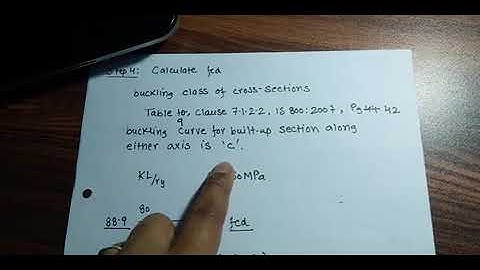 Step 4: Calculate fcd
buckling class of cross-sections
Table 10, Clause 7.1.2.2, IS 800:2007, Pg 44 42
9
buckling curve for built-up section along
either axis is 'c'.
KL/ry MPa
80
88.9 fcd